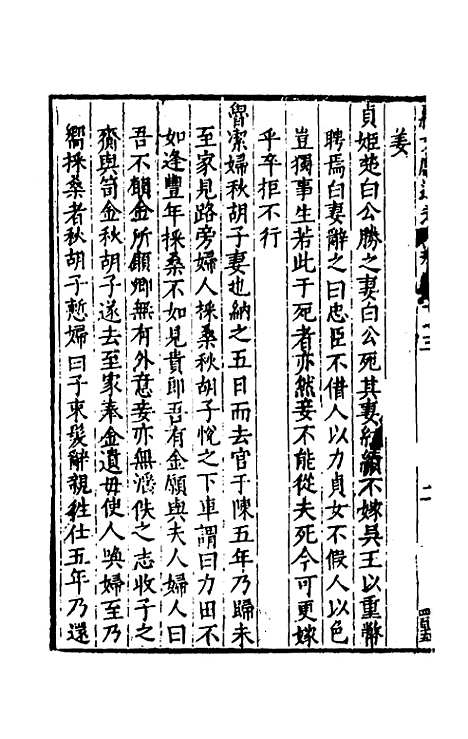 姜
貞姬楚白公勝之妻白公死其妻紡績不嫁吳王以重幣
聘焉白妻辭之曰忠臣不借人以力貞女不假人以色
豈獨事生若此于死者亦然妾不能從夫死今可更嫁
乎卒拒不行
魯潔婦秋胡子妻也納之五日而去官于陳五年乃歸未
至家見路旁婦人採桑秋胡子悅之下車謂曰力田不
如逢豐年採桑不如見貴郎吾有金願與夫人婦人曰
吾不願金所願卿無有外意妾亦無滛佚之志收子之
齎與笥金秋胡子遂去至家奉金遺母使人喚婦至乃
嚮採桑者秋胡子慙婦曰子束髮辭親徃仕五年乃還